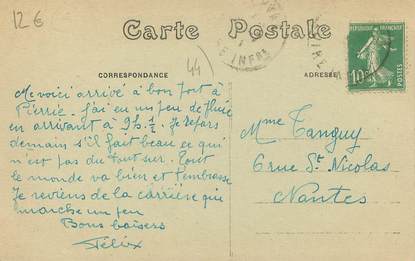 12 €
Carte Postale
CORRESPONDANCE
ADRESSE
44
REPUBLIQUE FRANÇAISE
10
INFRE
Me voici arrivé à bon port à
Pierric. J'ai eu un peu de pluie
en arrivant à 9h ½. Je repars
demain s'il fait beau ce qui
n'est pas du tout sur. Tout
le monde va bien et t'embrasse
Je reviens de la carrière qui
marche un peu
Bons baisers
Félix
Mme Tanguy
6 rue St Nicolas
Nantes